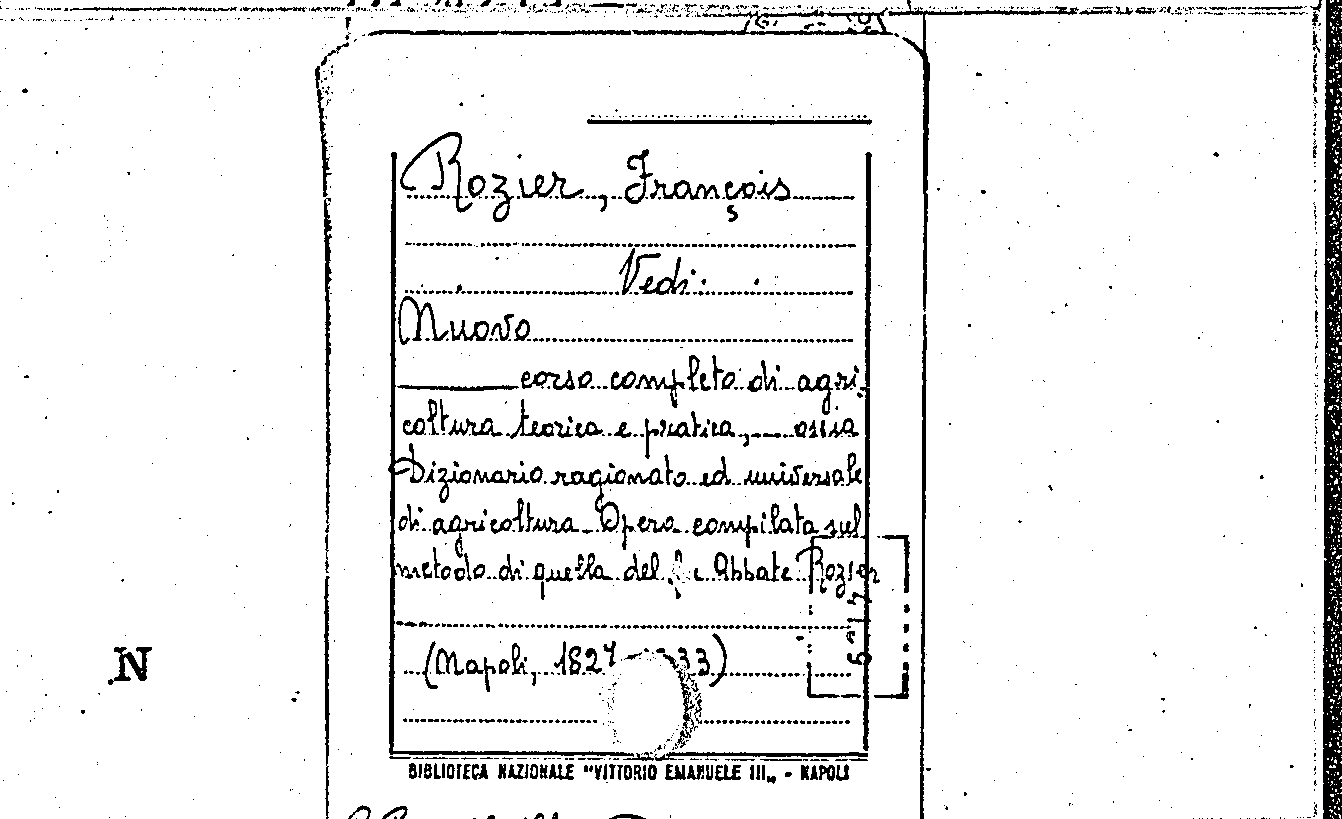 Rozier, François
Vedi:
Nuovo
corso completo di agri-
coltura teorica e pratica, ossia
Dizionario ragionato ed universale
di agricoltura. Opera compilata sul
metodo di quella del Abbate Rozier
(Napoli, 1827 33)
N
BIBLIOTECA NAZIONALE "VITTORIO EMANUELE III„ - NAPOLI